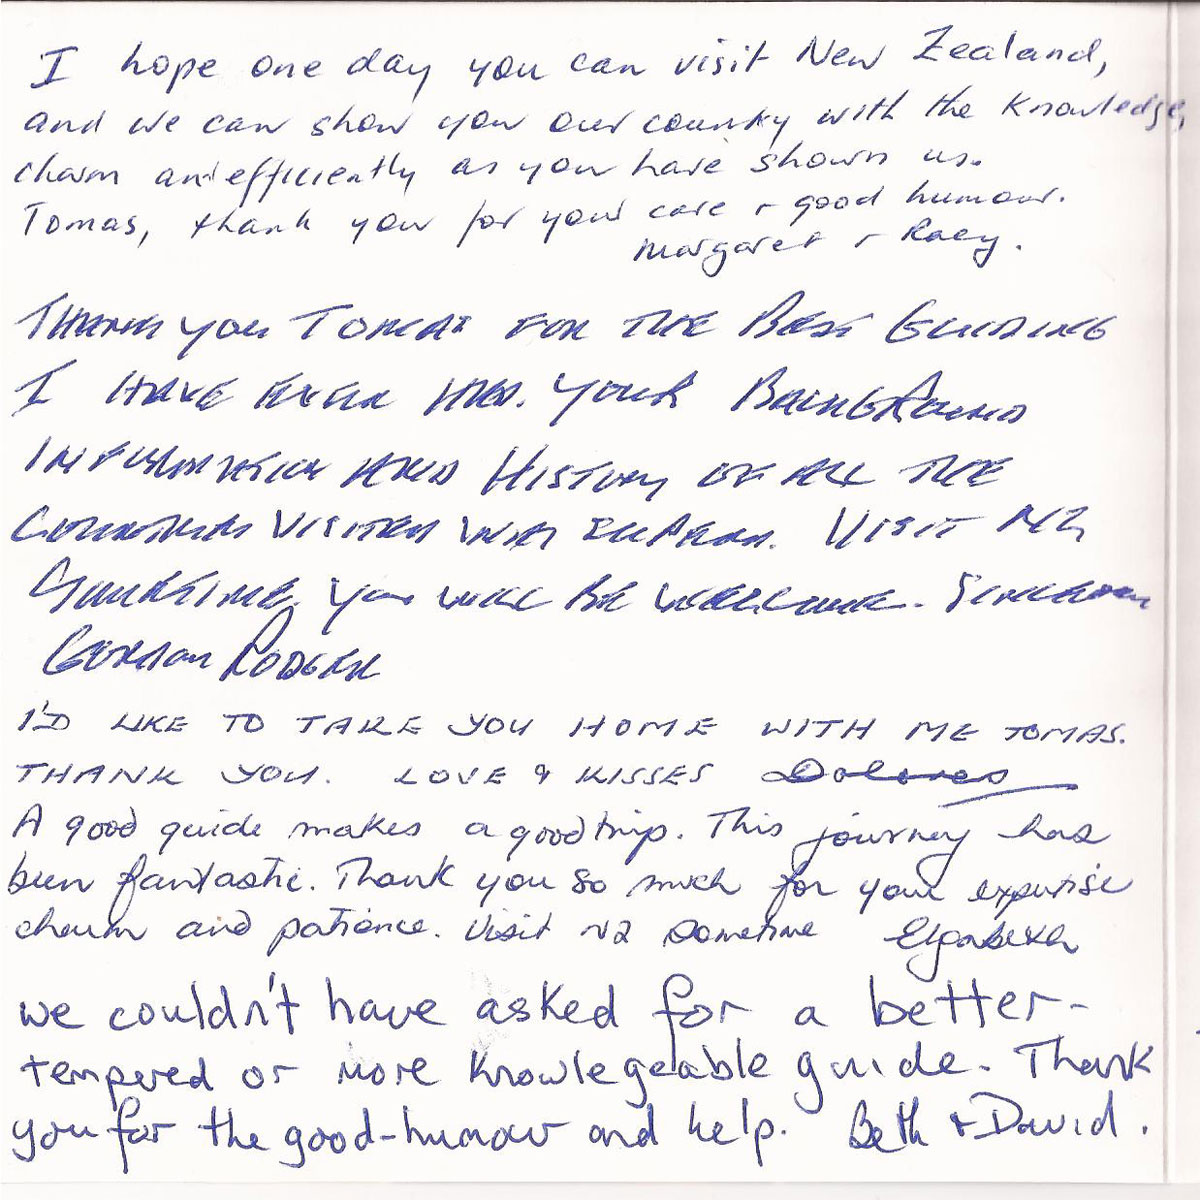 I hope one day you can visit New Zealand,
and we can show you our country with the knowledge,
charm and efficiently as you have shown us.
Tomas, thank you for your care + good humour.
Margaret + Rory.
THANK YOU TOMAS FOR THE BEST GUIDING
I HAVE EVER HAD. YOUR BACKGROUND
INFORMATION AND HISTORY OF ALL THE
COUNTRIES VISITED WAS SUPERB. VISIT NZ
SOMETIME YOU WILL BE WELCOME. SINCERELY
GORDON RODGER
I'D LIKE TO TAKE YOU HOME WITH ME TOMAS.
THANK YOU. LOVE & KISSES Dolores
A good guide makes a good trip. This journey has
been fantastic. Thank you so much for your expertise
charm and patience. Visit NZ sometime Elizabeth
we couldn't have asked for a better-
tempered or more knowlegeable guide. Thank
you for the good-humour and help. Beth + David.